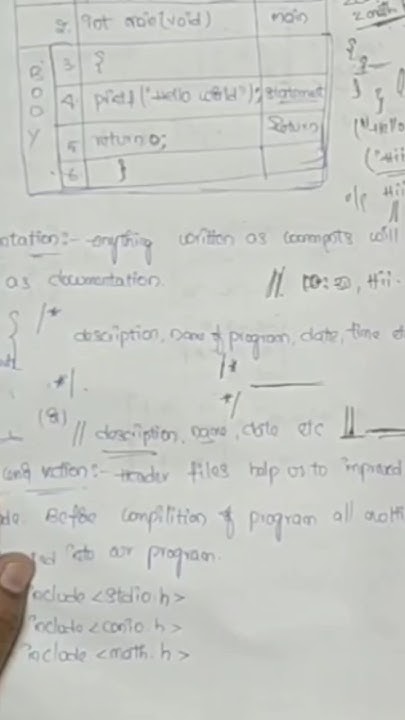 2. int main(void) main
B O D Y
3 {
4. printf("Hello world"); statement
5 return 0; Return
6 }
{
}
}
("Hello
("Hii
o/p Hii
ntation:- anything written as comments will
as documentation. //
, Hii.
{ /*
description, name of program, date, time e
*/.
/*
*/
(8) // description, name, date etc //
:- Header files help us to
de. Before compilition of program all
into our program.
include <stdio.h>
include <conio.h>
include <math.h>